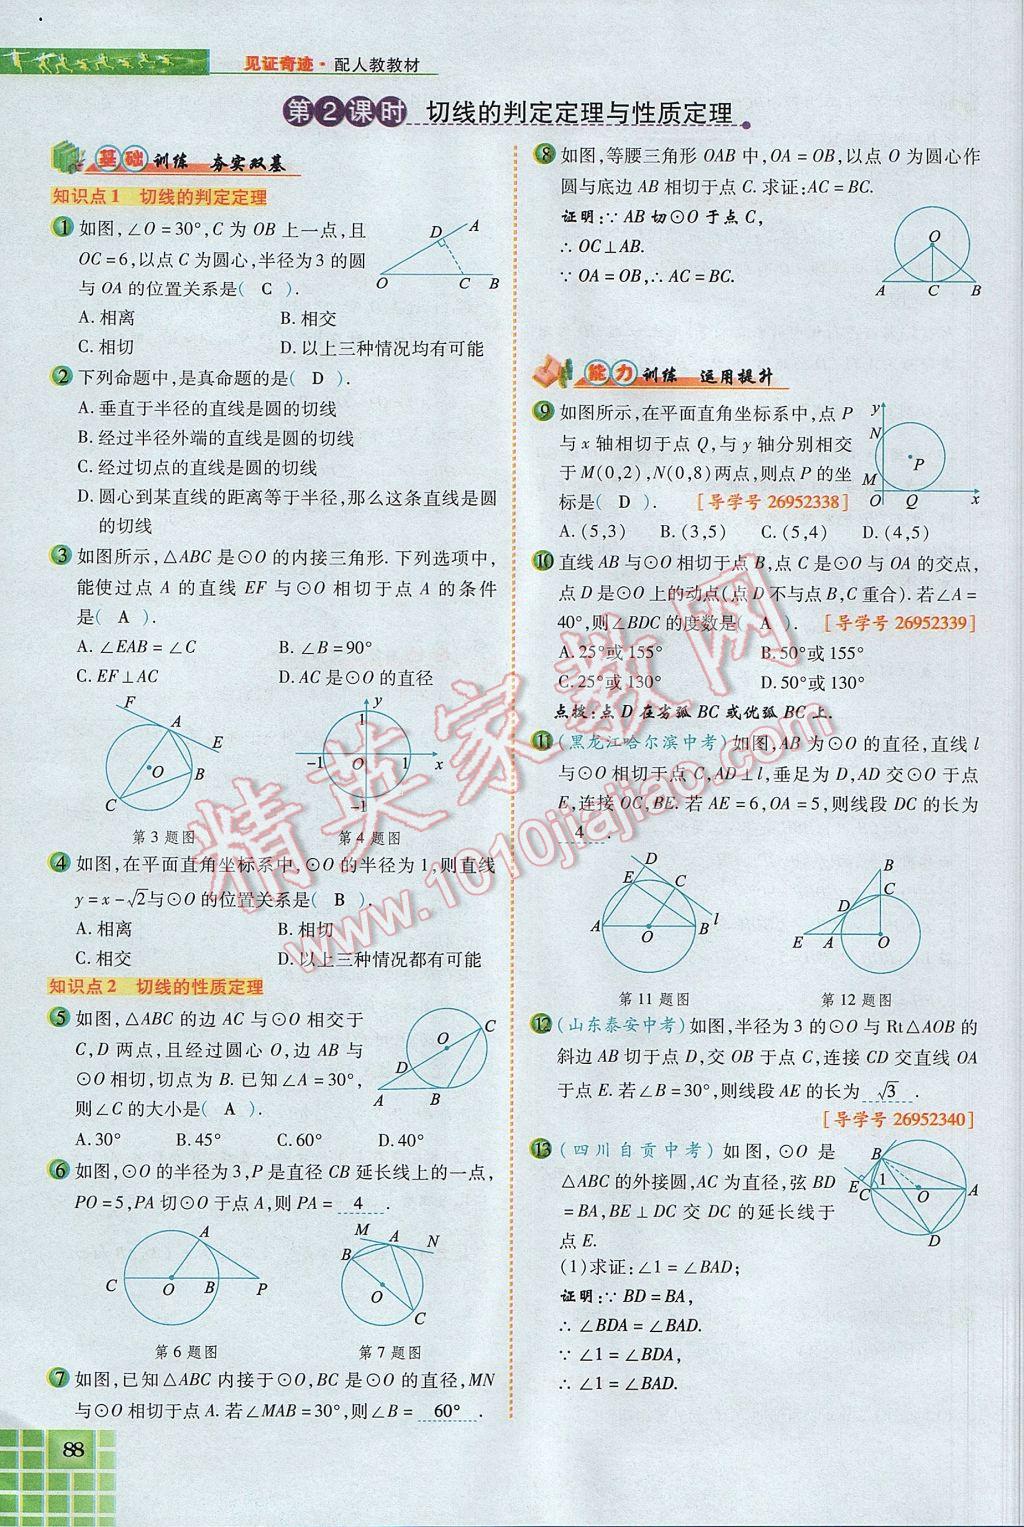 见证奇迹·配人教教材
第2课时 切线的判定定理与性质定理
基础训练 夯实双基
知识点1 切线的判定定理
1 如图,∠O=30°,C 为 OB 上一点,且
OC=6,以点 C 为圆心,半径为3 的圆
与 OA 的位置关系是( C ).
A. 相离 B. 相交
C. 相切 D. 以上三种情况均有可能
D A O C B
2 下列命题中,是真命题的是( D ).
A. 垂直于半径的直线是圆的切线
B. 经过半径外端的直线是圆的切线
C. 经过切点的直线是圆的切线
D. 圆心到某直线的距离等于半径,那么这条直线是圆
的切线
3 如图所示,△ABC 是⊙O 的内接三角形. 下列选项中,
能使过点 A 的直线 EF 与⊙O 相切于点 A 的条件
是( A ).
A. ∠EAB=∠C B. ∠B=90°
C. EF⊥AC D. AC 是⊙O 的直径
F A E O B C
y 1 -1 O 1 x -1
第 3 题图 第 4 题图
4 如图,在平面直角坐标系中,⊙O 的半径为1,则直线
y=x-√2与⊙O 的位置关系是( B ).
A. 相离 B. 相切
C. 相交 D. 以上三种情况都有可能
知识点2 切线的性质定理
5 如图,△ABC 的边 AC 与⊙O 相交于
C,D 两点,且经过圆心 O,边 AB 与
⊙O 相切,切点为 B. 已知∠A=30°,
则∠C 的大小是( A ).
A. 30° B. 45° C. 60° D. 40°
C O D A B
6 如图,⊙O 的半径为3,P 是直径 CB 延长线上的一点,
PO=5,PA 切⊙O 于点 A,则 PA= 4 .
A C O B P
M A N B O C
第 6 题图 第 7 题图
7 如图,已知△ABC 内接于⊙O,BC 是⊙O 的直径,MN
与⊙O 相切于点 A. 若∠MAB=30°,则∠B= 60° .
88
8 如图,等腰三角形 OAB 中,OA=OB,以点 O 为圆心作
圆与底边 AB 相切于点 C. 求证:AC=BC.
证明:∵ AB 切⊙O 于点 C,
∴ OC⊥AB.
∵ OA=OB,∴ AC=BC.
O A C B
能力训练 运用提升
9 如图所示,在平面直角坐标系中,点 P
与 x 轴相切于点 Q,与 y 轴分别相交
于 M(0,2),N(0,8)两点,则点 P 的坐
标是( D ). [导学号 26952338]
A. (5,3) B. (3,5) C. (5,4) D. (4,5)
y N P M O Q x
10 直线 AB 与⊙O 相切于点 B,点 C 是⊙O 与 OA 的交点,
点 D 是⊙O 上的动点(点 D 不与点 B,C 重合). 若∠A=
40°,则∠BDC 的度数是( A ). [导学号 26952339]
A. 25°或 155° B. 50°或 155°
C. 25°或 130° D. 50°或 130°
点拨:点 D 在劣弧 BC 或优弧 BC 上.
11 (黑龙江哈尔滨中考)如图,AB 为⊙O 的直径,直线 l
与⊙O 相切于点 C,AD⊥l,垂足为 D,AD 交⊙O 于点
E,连接 OC,BE. 若 AE=6,OA=5,则线段 DC 的长为
4 .
D E C A O B l
B C D E A O
第 11 题图 第 12 题图
12 (山东泰安中考)如图,半径为 3 的⊙O 与 Rt△AOB 的
斜边 AB 切于点 D,交 OB 于点 C,连接 CD 交直线 OA
于点 E. 若∠B=30°,则线段 AE 的长为 √3 .
[导学号 26952340]
13 (四川自贡中考)如图,⊙O 是
△ABC 的外接圆,AC 为直径,弦 BD
=BA,BE⊥DC 交 DC 的延长线于
点 E.
B E C 1 O A D
(1)求证:∠1=∠BAD;
证明:∵ BD=BA,
∴ ∠BDA=∠BAD.
∵ ∠1=∠BDA,
∴ ∠1=∠BAD.
精英家教网
www.1010jiajiao.com